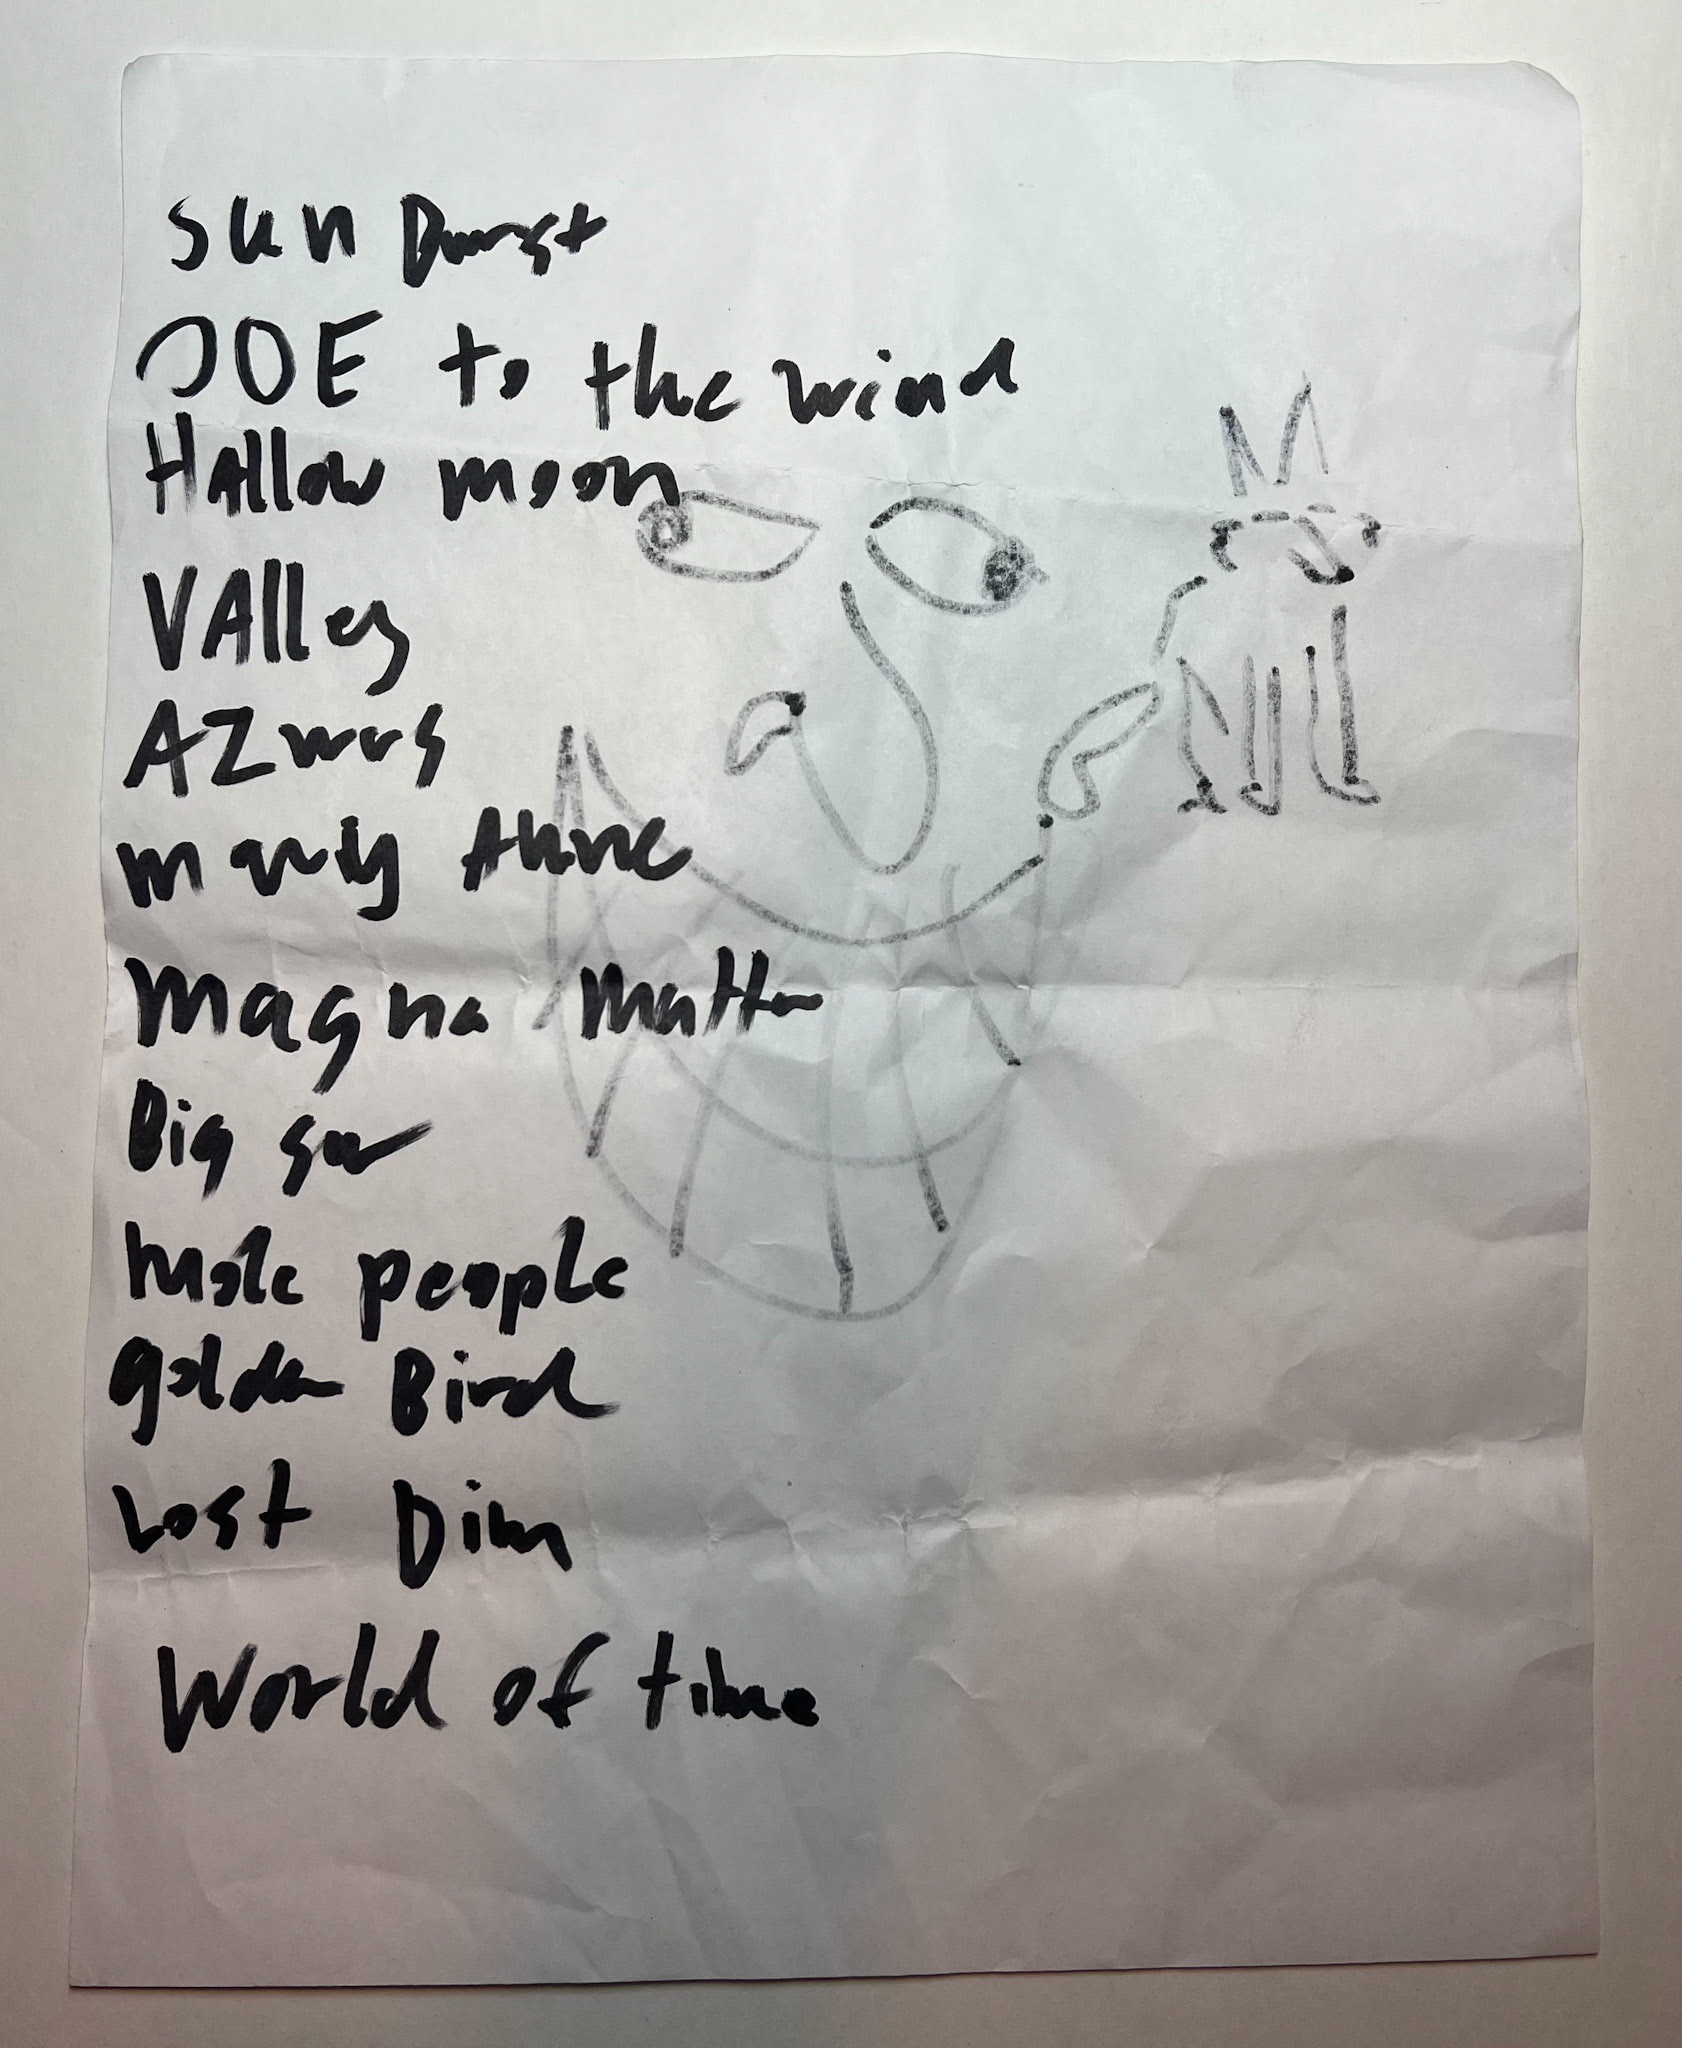 Sun Burst
JOE to the wind
Hallow moon
VAlley
AZwrs
Marily Alive
Magna Matter
Big Sur
Mole people
Golden Bird
Lost Dim
World of time